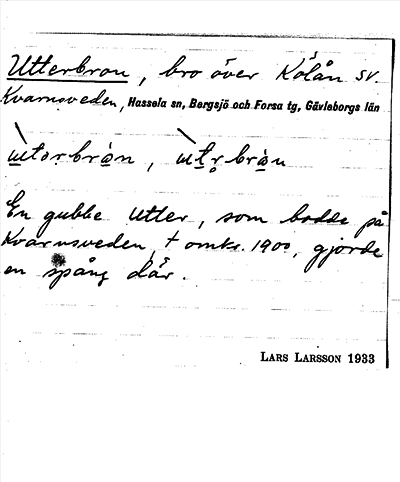 Utterbron, bro över Kölån SV
Kvarnsveden, Hassela sn, Bergsjö och Forsa tg, Gävleborgs län
En gubbe Utter, som bodde på
Kvarnsveden, † omkr. 1900, gjorde
en spång där.
LARS LARSSON 1933